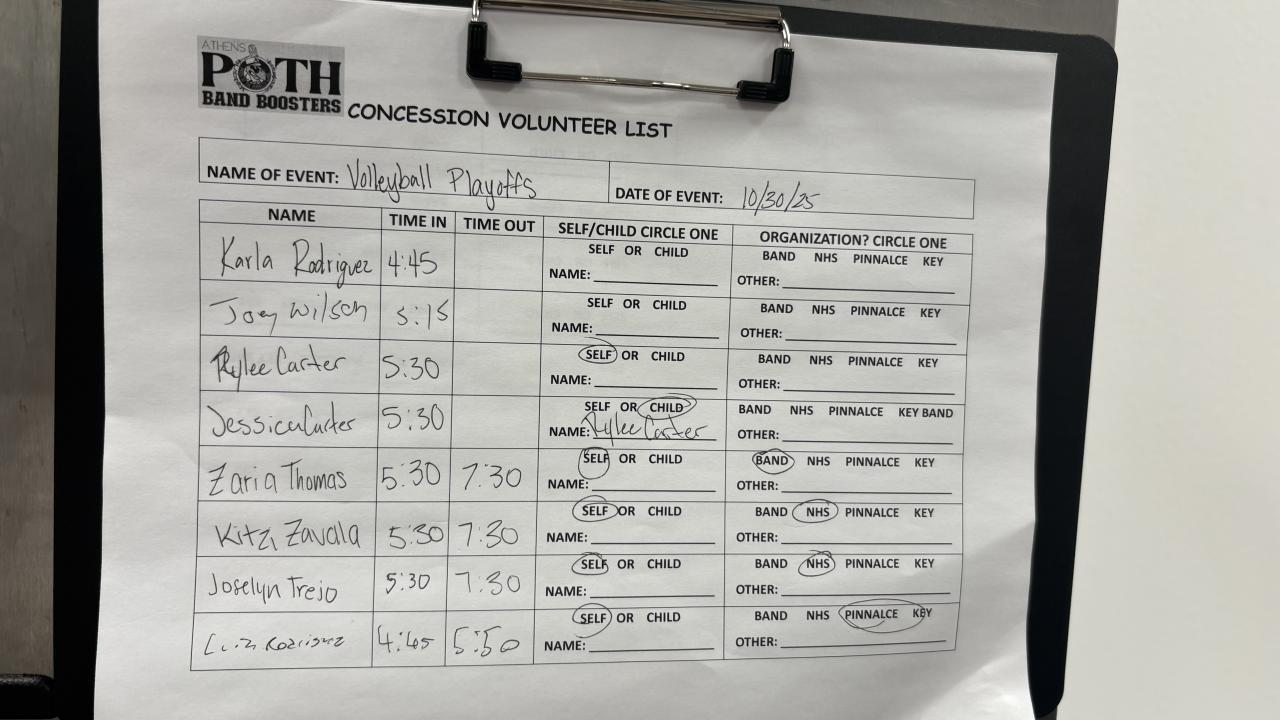 ATHENS
POTH
BAND BOOSTERS
CONCESSION VOLUNTEER LIST
NAME OF EVENT: Volleyball Playoffs DATE OF EVENT: 10/30/25
NAME TIME IN TIME OUT SELF/CHILD CIRCLE ONE ORGANIZATION? CIRCLE ONE
Karla Rodriguez 4:45 SELF OR CHILD BAND NHS PINNALCE KEY
NAME: OTHER:
Joey Wilson 5:15 SELF OR CHILD BAND NHS PINNALCE KEY
NAME: OTHER:
Rylee Carter 5:30 SELF OR CHILD BAND NHS PINNALCE KEY
NAME: OTHER:
Jessica Carter 5:30 SELF OR CHILD BAND NHS PINNALCE KEY BAND
NAME: Rylee Carter OTHER:
Zaria Thomas 5:30 7:30 SELF OR CHILD BAND NHS PINNALCE KEY
NAME: OTHER:
Kitzi Zavalla 5:30 7:30 SELF OR CHILD BAND NHS PINNALCE KEY
NAME: OTHER:
Joselyn Trejo 5:30 7:30 SELF OR CHILD BAND NHS PINNALCE KEY
NAME: OTHER:
Rodriguez 4:45 5:50 SELF OR CHILD BAND NHS PINNALCE KEY
NAME: OTHER: